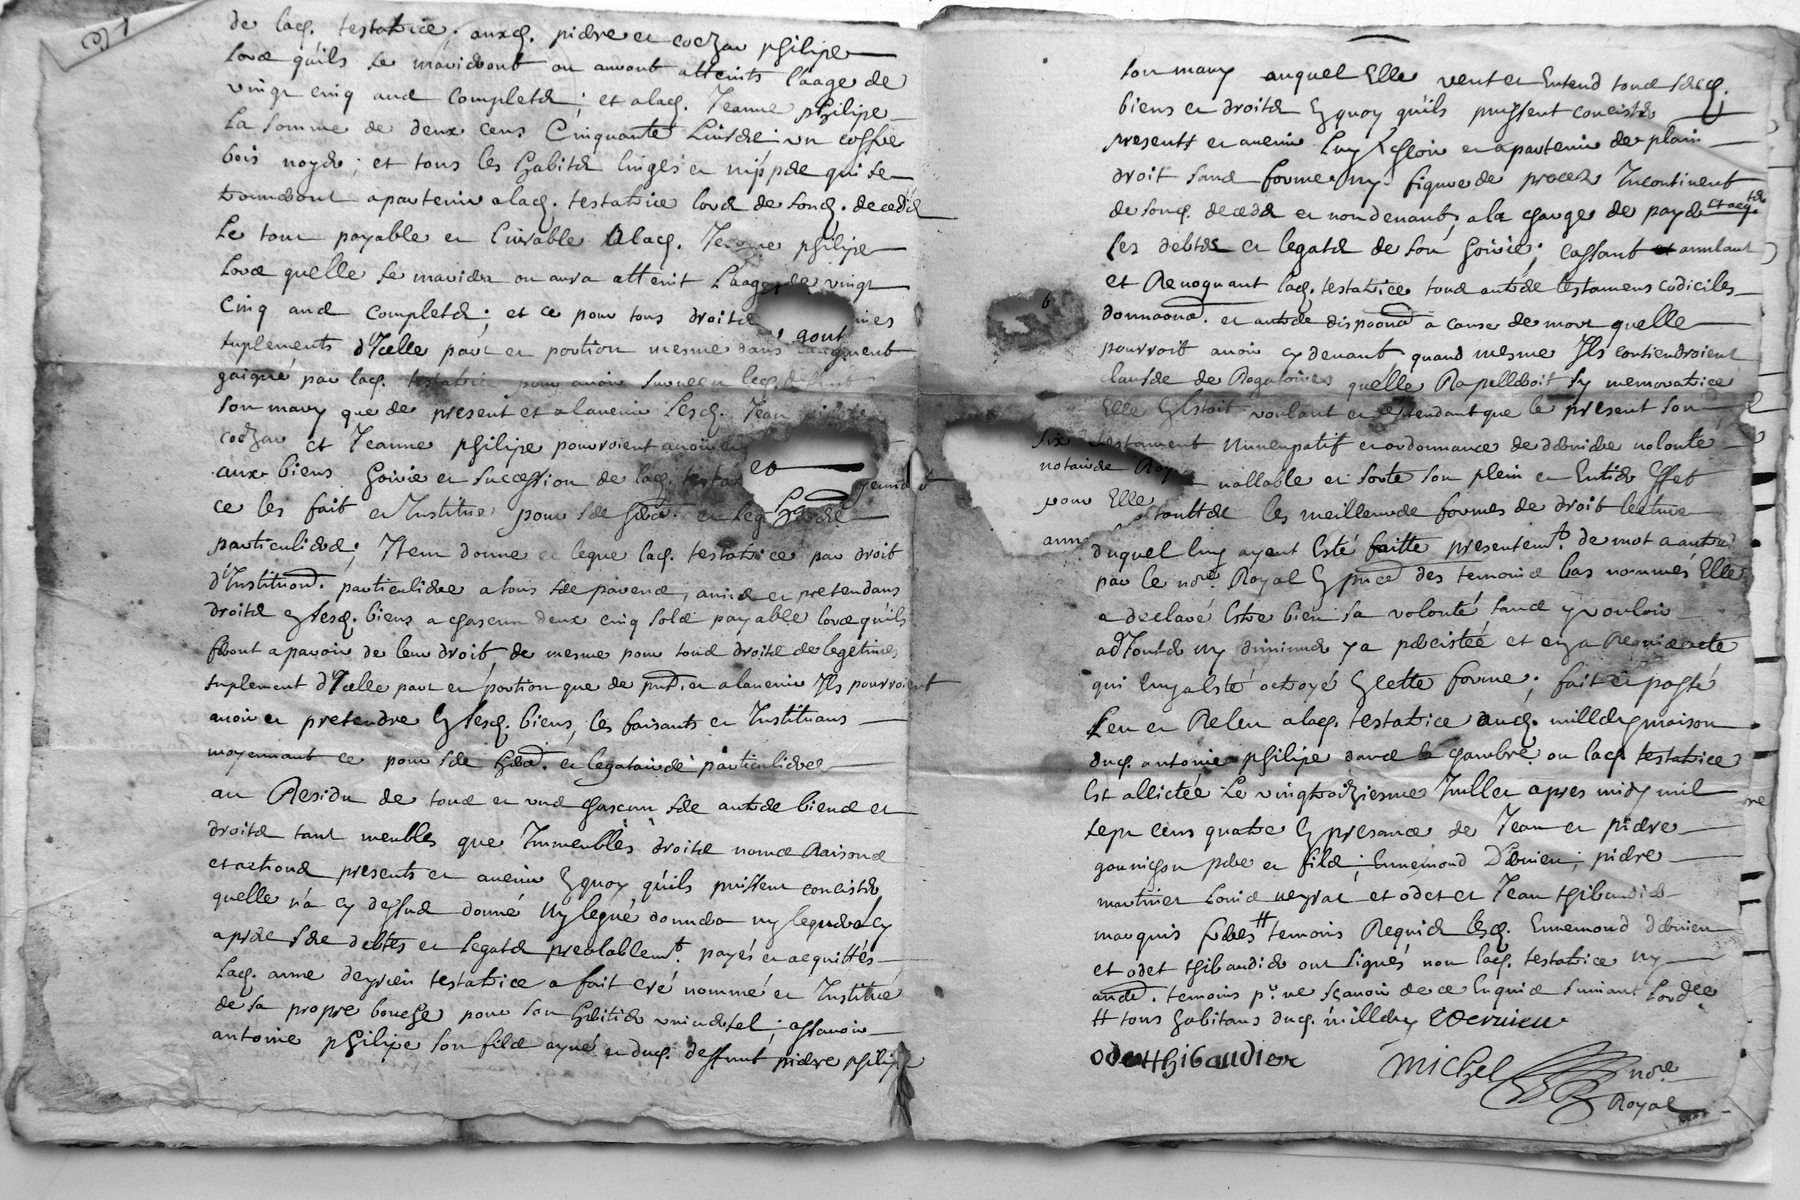 de lad. testatrice. auxd. pierre et cochar philipe
lors quils se marieront ou auront atteints l'aage de
vingt cinq ans completz ; et a lad. Jeanne philipe
La somme de deux cens Cinquante Livres un coffre
bois noyer ; et tous les habitz linges et nippes qui se
trouveront apartenir a lad. testatrice lors de sond. deceds
Le tout payable et livrable a lad. Jeanne philipe
Lors quelle se mariera ou aura atteint L'aage de vingt
cinq ans completz ; et ce pour tous droitz
suplements d'Icelle part et portion mesme dans gont
gaigné par lad. testatrice pour avoir survecu led. deffunt
son mary que de present et a lavenir Lesd. Jean
cochar et Jeanne philipe pourroient avoir et
aux biens hoirie et succession de lad. testa
ce les fait et Institue pour ses herd. et leg
particuliers ; Item donne et legue lad. testatrice par droit
d'Institution particuliere a tous ses parens, amis et pretendans
droitz en sesd. biens a chascun deux cinq solz payable lors quils
feront aparoir de leur droit, de mesme pour tous droitz de legetimes
suplement d'Icelle part et portion que de pnt. et a lavenir Ils pourroient
avoir et pretendre En sesd. biens, les faisants et Instituans
moyennant ce pour ses herd. et legataires particuliers
au Residu de tous et uns chascun ses autres biens et
droitz tant meubles que Immeubles droitz noms Raisons
et actions presents et avenir En quoy quils puissent concister
quelle n'a cy dessus donné Ny legué donnera ny leguera cy
apres ses debtes et legatz prealablemt. payés et acquittés
Lad. anne deyrieu testatrice a fait cré nommé et Institué
de sa propre bouche pour son heritier universel ; assavoir
antoine philipe son filz ayné et dud. deffunt pierre philipe
son mary auquel Elle veut et Entend tous sesd.
biens et droitz En quoy quils puissent concister
presents et avenir Luy Escheoir et apartenir de plain
droit sans forme ny figure de procez Incontinent
de sond. deceds et non devant, a la charge de payer et acq.ter
les debtes et legatz de son hoirie ; cassant et annulant
et Revoquant lad. testatrice tous autres testamens codiciles
donnaons. et autres dispoons a cause de mort quelle
pourroit avoir cy devant quand mesme Ils contiendroient
clauses de Rogatoires quelle Rapelleroit sy memoratrice
Elle En Estoit voulant et Entendant que le present son
testament Nuncupatif et ordonnance de derniere volonté
notaire Roy vallable et sorte son plein et Entier Effet
pour Elle toutes les meilleures formes de droit lecture
duquel luy ayent Esté faitte presentemt. de mot a autre
par le nore. Royal En pnce des temoins bas nommés Elle
a declaré Estre bien sa volonté sans y vouloir
adJouter ny diminuer y a percistée et en a Requis acte
qui luy a Esté octroyé En cette forme ; fait et passé
Leu et Releu a lad. testatrice aud. millery maison
dud. antoine philipe dans la chambre ou lad. testatrice
Est allictée Le vingtroiziesme Juillet apres midy mil
sept cens quatre En presance de Jean et pierre
gounichon pere et filz ; Ennemond Dervieu ; pierre
martinier Louis neyrat et odet et Jean thibaudier
marquis freres # temoins Requis lesd. Ennemond dervieu
et odet thibaudier ont signés non lad. testatrice ny
autres. temoins pr. ne sçavoir de ce Enquis suivant Lordce
# tous habitans dud. millery EDervieu
Odet thibaudier
Michel nore.
Royal